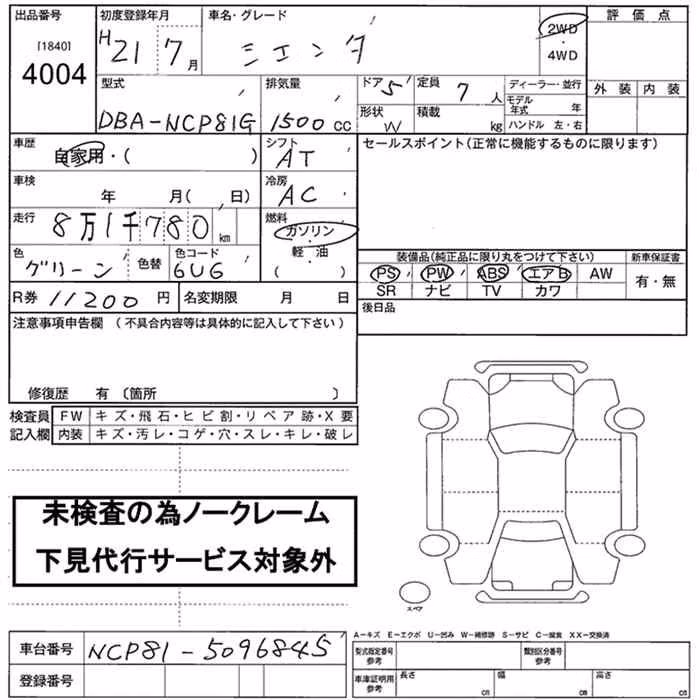 出品番号 初度登録年月 車名・グレード 評価点
[1840] 4004 H21 7月 シエンタ 2WD・4WD
外装 内装
型式 排気量 ドア 5 定員 7人 ディーラー・並行
DBA-NCP81G 1500cc 形状 W 積載 kg モデル年式 年
ハンドル 左・右
車歴 自家用・( ) シフト AT セールスポイント(正常に機能するものに限ります)
車検 年 月( 日) 冷房 AC
走行 8万1千780km 燃料 ガソリン・軽油 ( )
色 グリーン 色替 色コード 6UG
装備品(純正品に限り丸をつけて下さい) 新車保証書
PS PW ABS エアB AW 有・無
SR ナビ TV カワ
R券 11200円 名変期限 月 日 後日品
注意事項申告欄 (不具合内容等は具体的に記入して下さい)
修復歴 有 〔箇所 〕
検査員 FW キズ・飛石・ヒビ割・リペア跡・X要
記入欄 内装 キズ・汚レ・コゲ・穴・スレ・キレ・破レ
未検査の為ノークレーム
下見代行サービス対象外
スペア
A-キズ E-エクボ U-凹み W-補修跡 S-サビ C-腐食 XX-交換済
車台番号 NCP81-5096845 型式指定番号 参考 類別区分番号 参考
登録番号 車庫証明用 参考 長さ cm 幅 cm 高さ cm